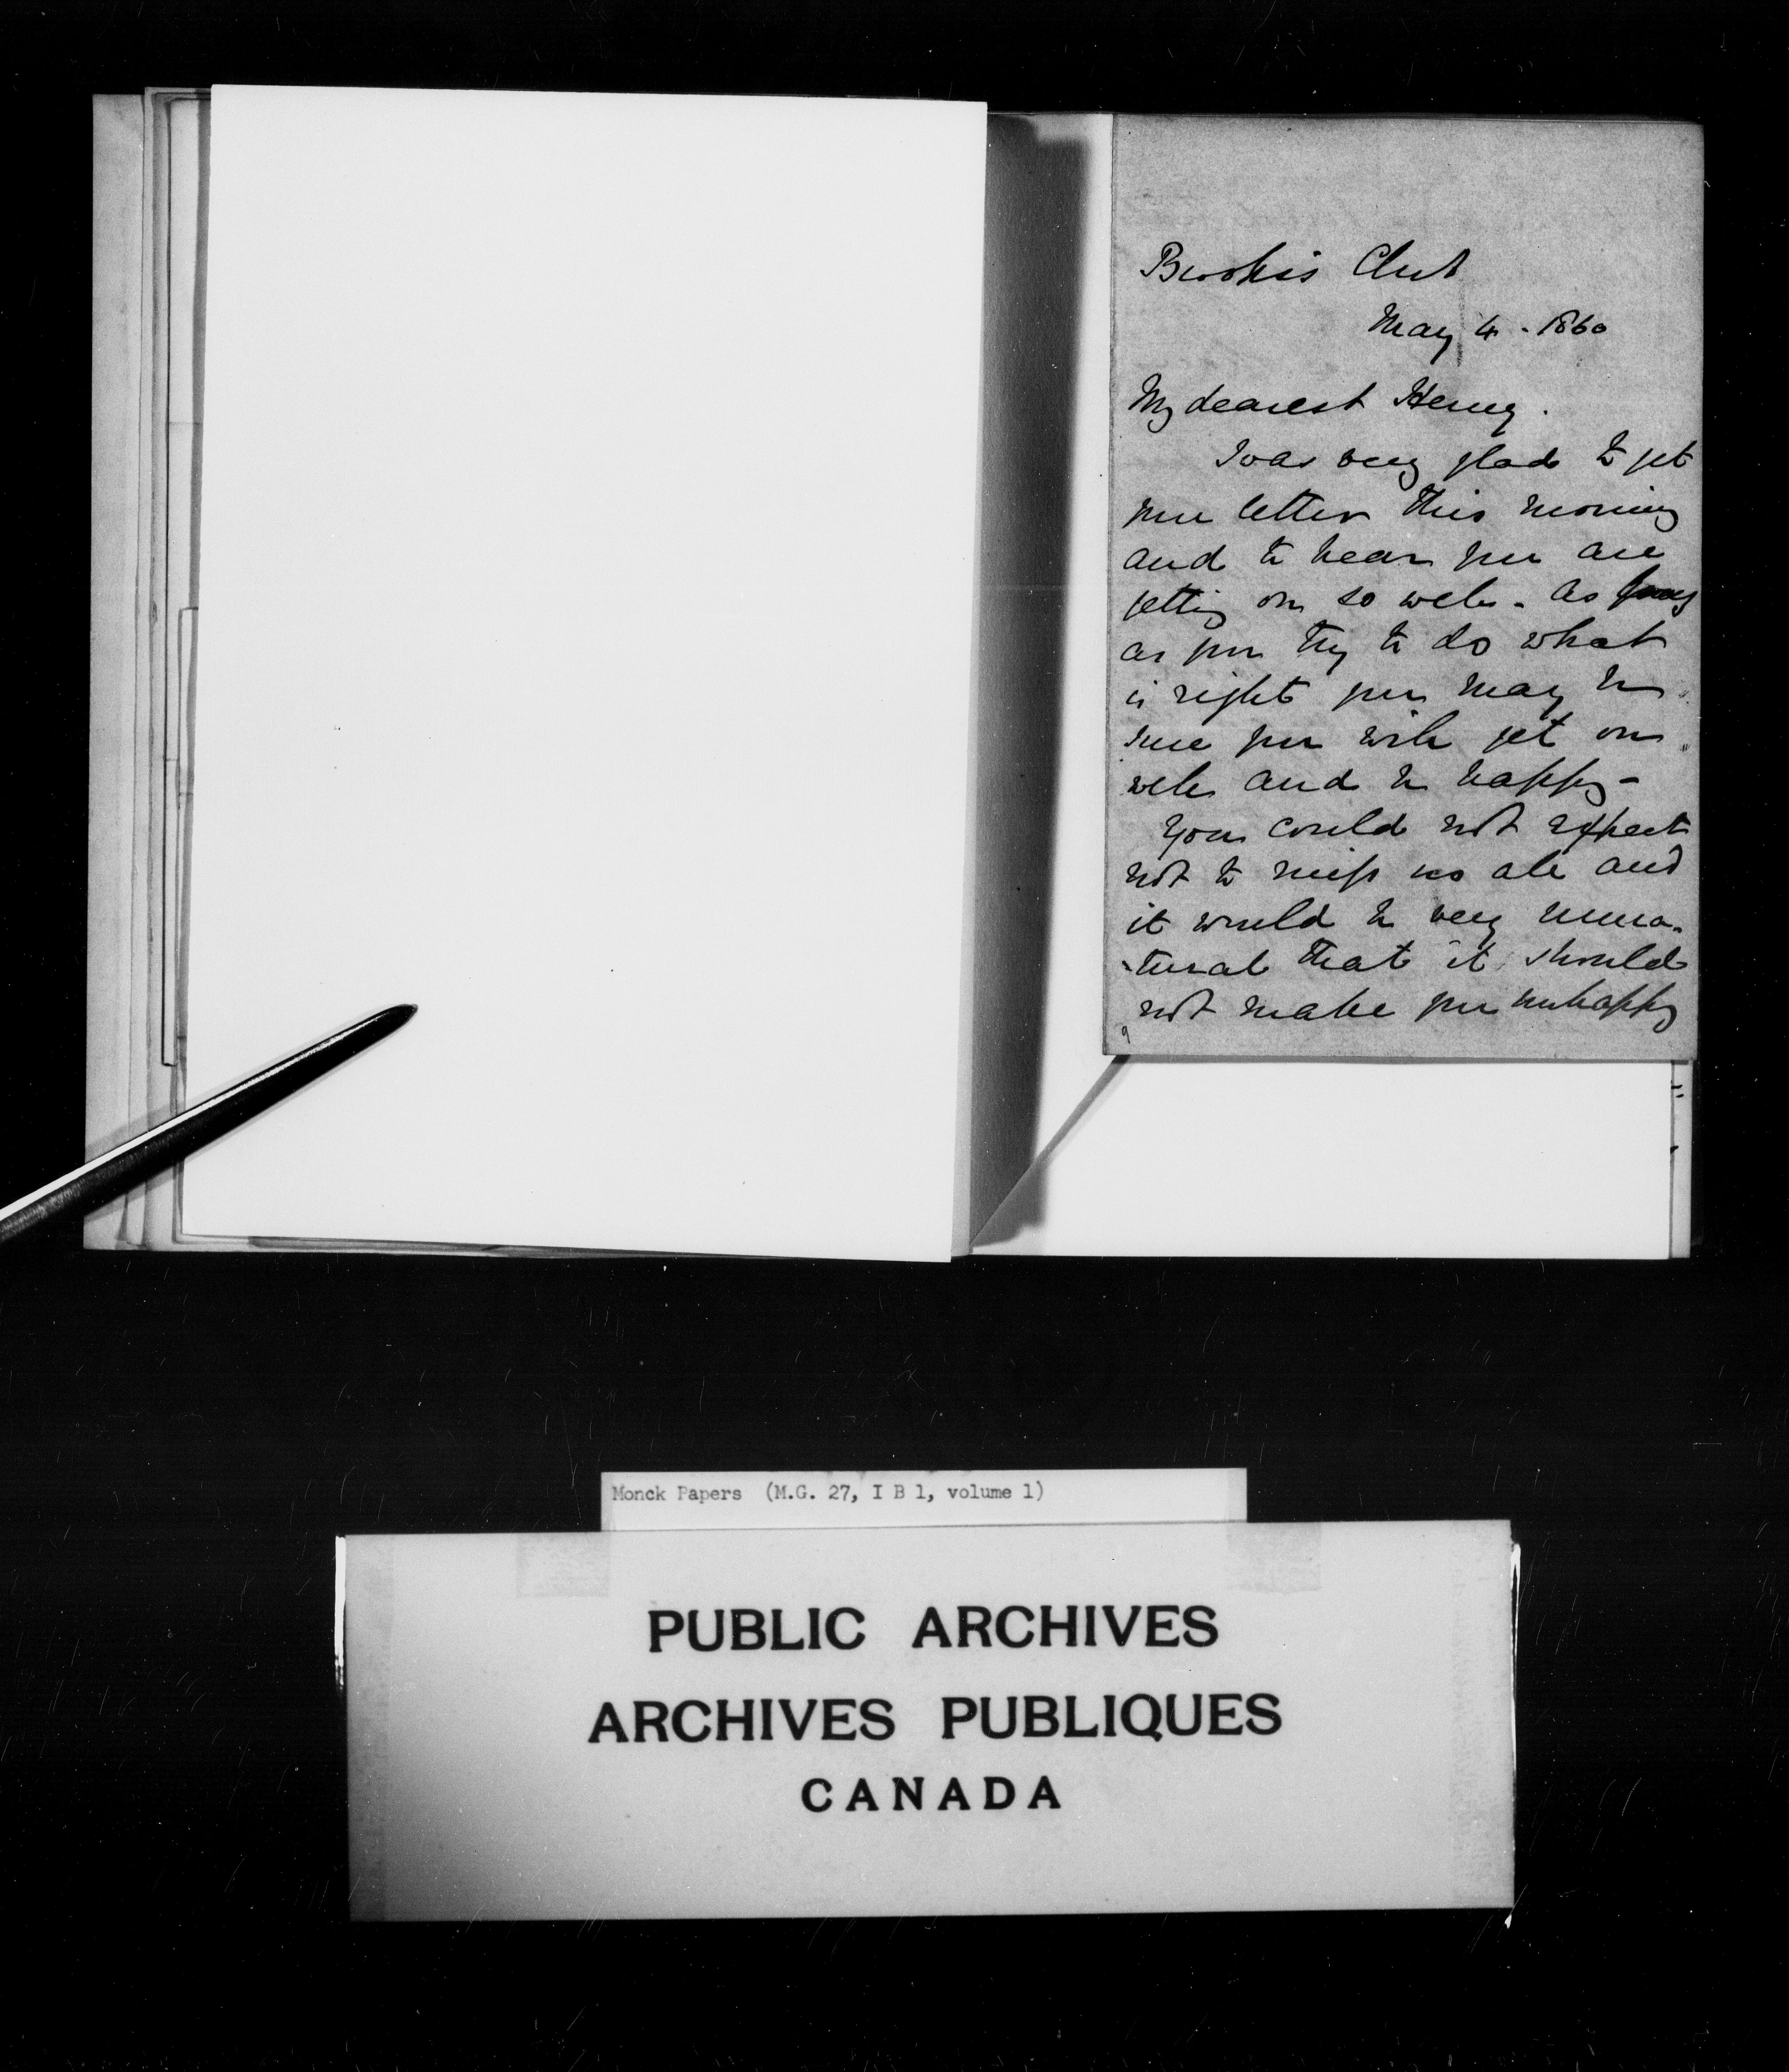 Brooks's Club
May 4 - 1860
My dearest Henry.
I was very glad to get
your letter this morning
and to hear you are
getting on so well - as long
as you try to do what
is right you may be
sure you will get on
well and be happy -
You could not expect
not to miss us all and
it would be very unna-
-tural that it should
not make you unhappy
9
Monck Papers (M.G. 27, I B 1, volume 1)
PUBLIC ARCHIVES
ARCHIVES PUBLIQUES
CANADA